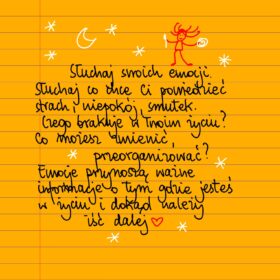 Słuchaj swoich emocji.
Słuchaj co chce Ci powiedzieć
strach, niepokój, smutek.
Czego brakuje w Twoim życiu?
Co możesz zmienić,
przeorganizować?
Emocje przynoszą ważne
informacje o tym gdzie jesteś
w życiu i dokąd należy
iść dalej